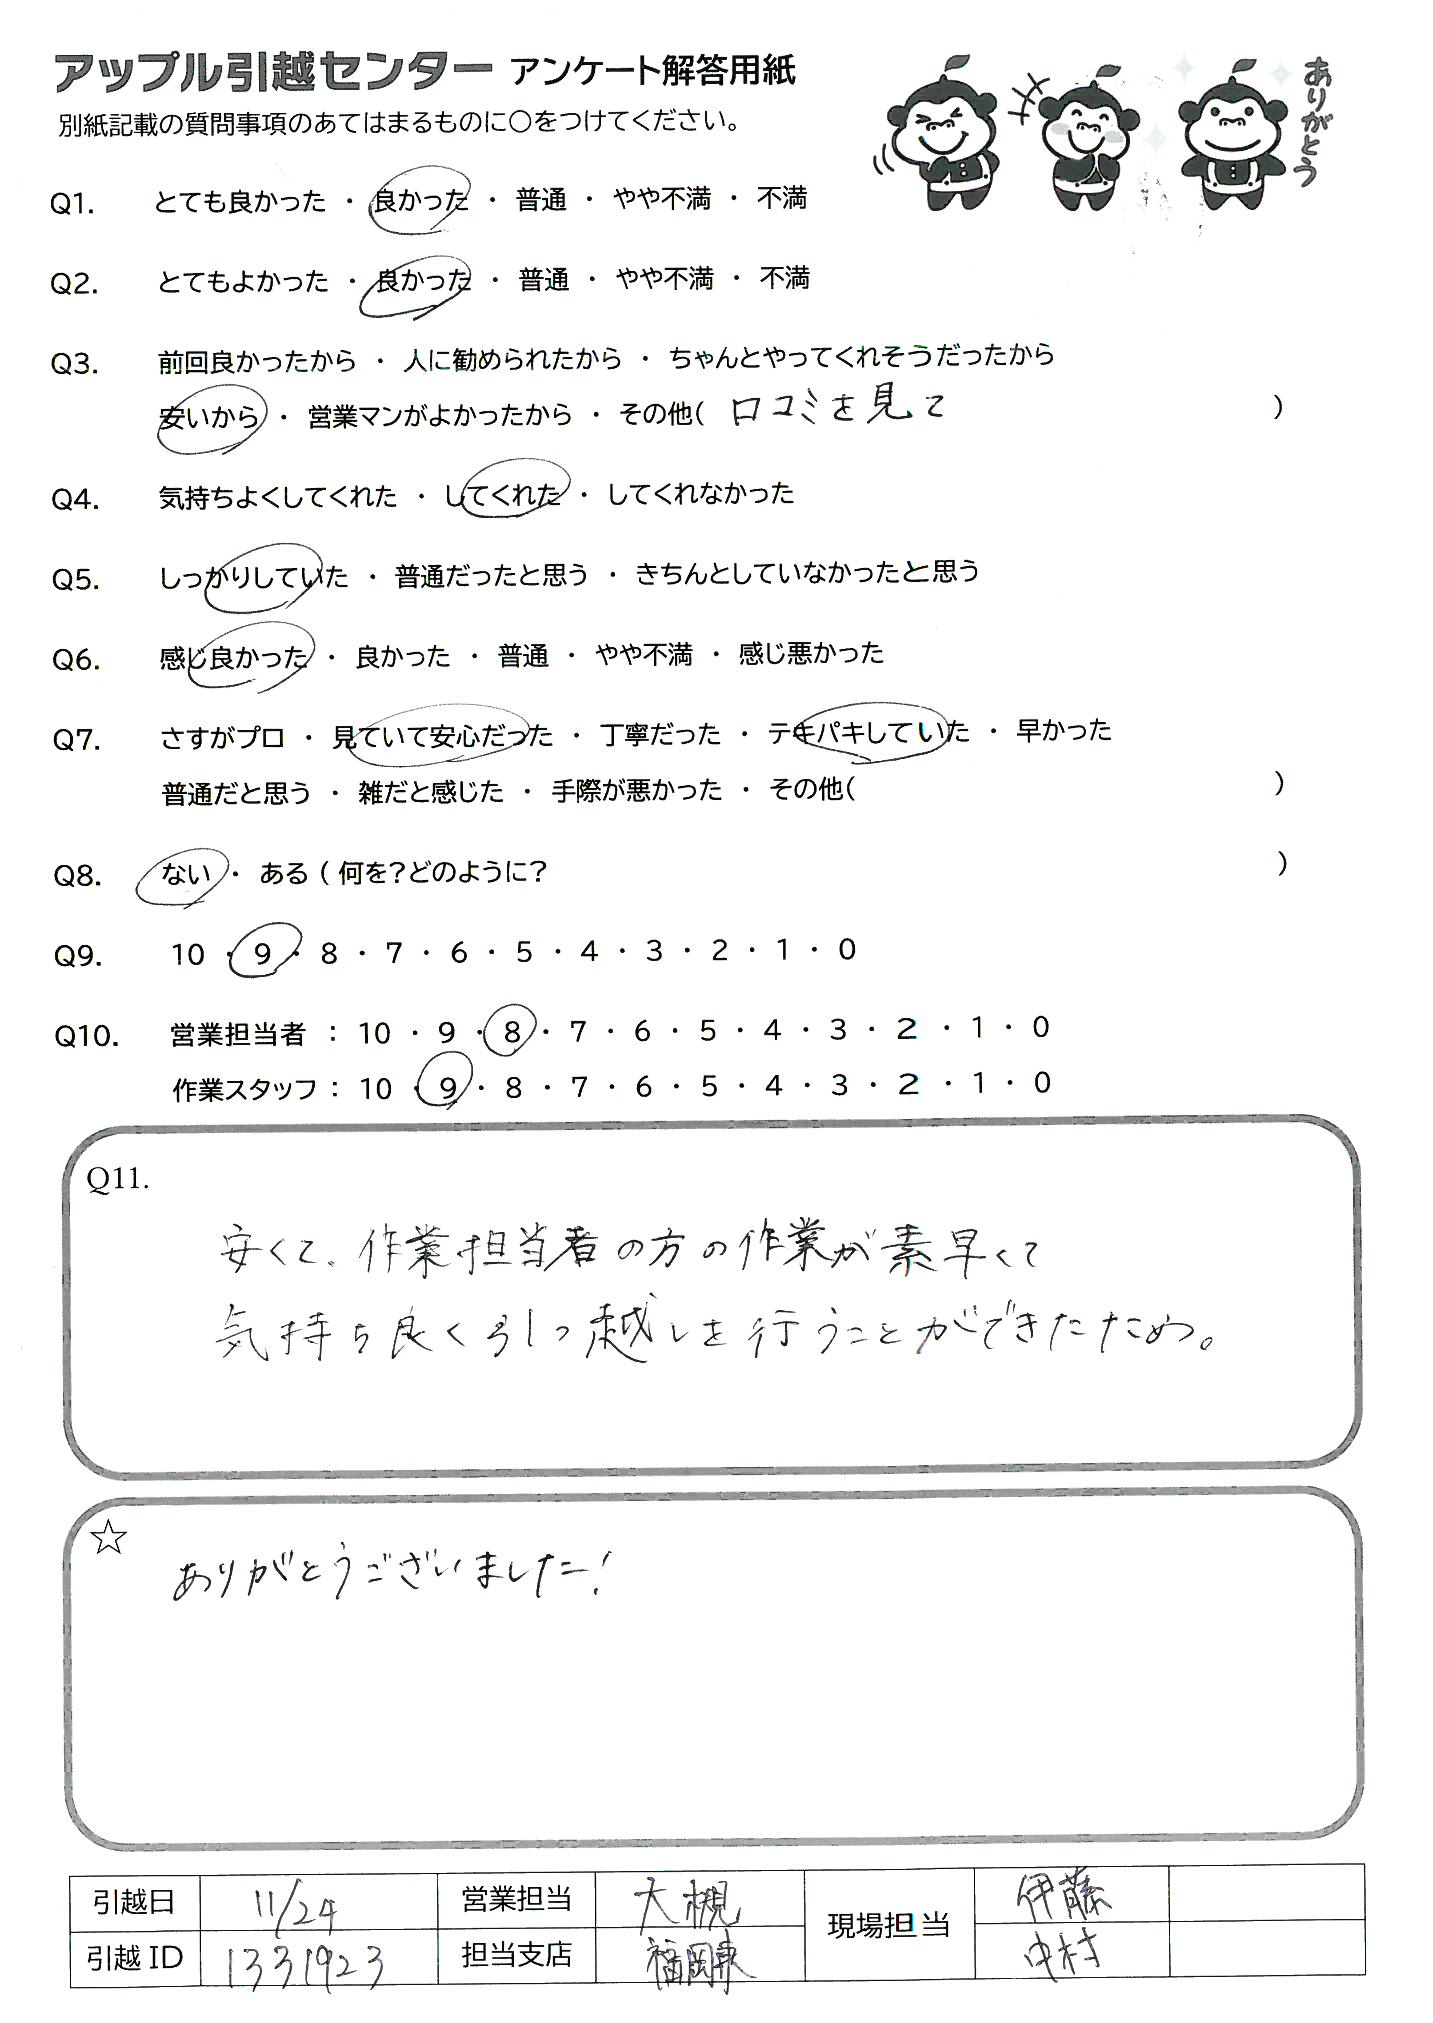 アップル引越センター アンケート解答用紙
ありがとう
別紙記載の質問事項のあてはまるものに○をつけてください。
Q1. とても良かった ・ 良かった ・ 普通 ・ やや不満 ・ 不満
Q2. とてもよかった ・ 良かった ・ 普通 ・ やや不満 ・ 不満
Q3. 前回良かったから ・ 人に勧められたから ・ ちゃんとやってくれそうだったから
安いから ・ 営業マンがよかったから ・ その他( 口コミを見て )
Q4. 気持ちよくしてくれた ・ してくれた ・ してくれなかった
Q5. しっかりしていた ・ 普通だったと思う ・ きちんとしていなかったと思う
Q6. 感じ良かった ・ 良かった ・ 普通 ・ やや不満 ・ 感じ悪かった
Q7. さすがプロ ・ 見ていて安心だった ・ 丁寧だった ・ テキパキしていた ・ 早かった
普通だと思う ・ 雑だと感じた ・ 手際が悪かった ・ その他( )
Q8. ない ・ ある ( 何を?どのように? )
Q9. 10 ・ 9 ・ 8 ・ 7 ・ 6 ・ 5 ・ 4 ・ 3 ・ 2 ・ 1 ・ 0
Q10. 営業担当者 : 10 ・ 9 ・ 8 ・ 7 ・ 6 ・ 5 ・ 4 ・ 3 ・ 2 ・ 1 ・ 0
作業スタッフ : 10 ・ 9 ・ 8 ・ 7 ・ 6 ・ 5 ・ 4 ・ 3 ・ 2 ・ 1 ・ 0
Q11.
安くて、作業担当者の方の作業が素早くて
気持ち良く引っ越しを行うことができたため。
☆
ありがとうございました!
引越日 11/24 営業担当 大槻 現場担当 伊藤
引越ID 1331923 担当支店 福岡東 中村